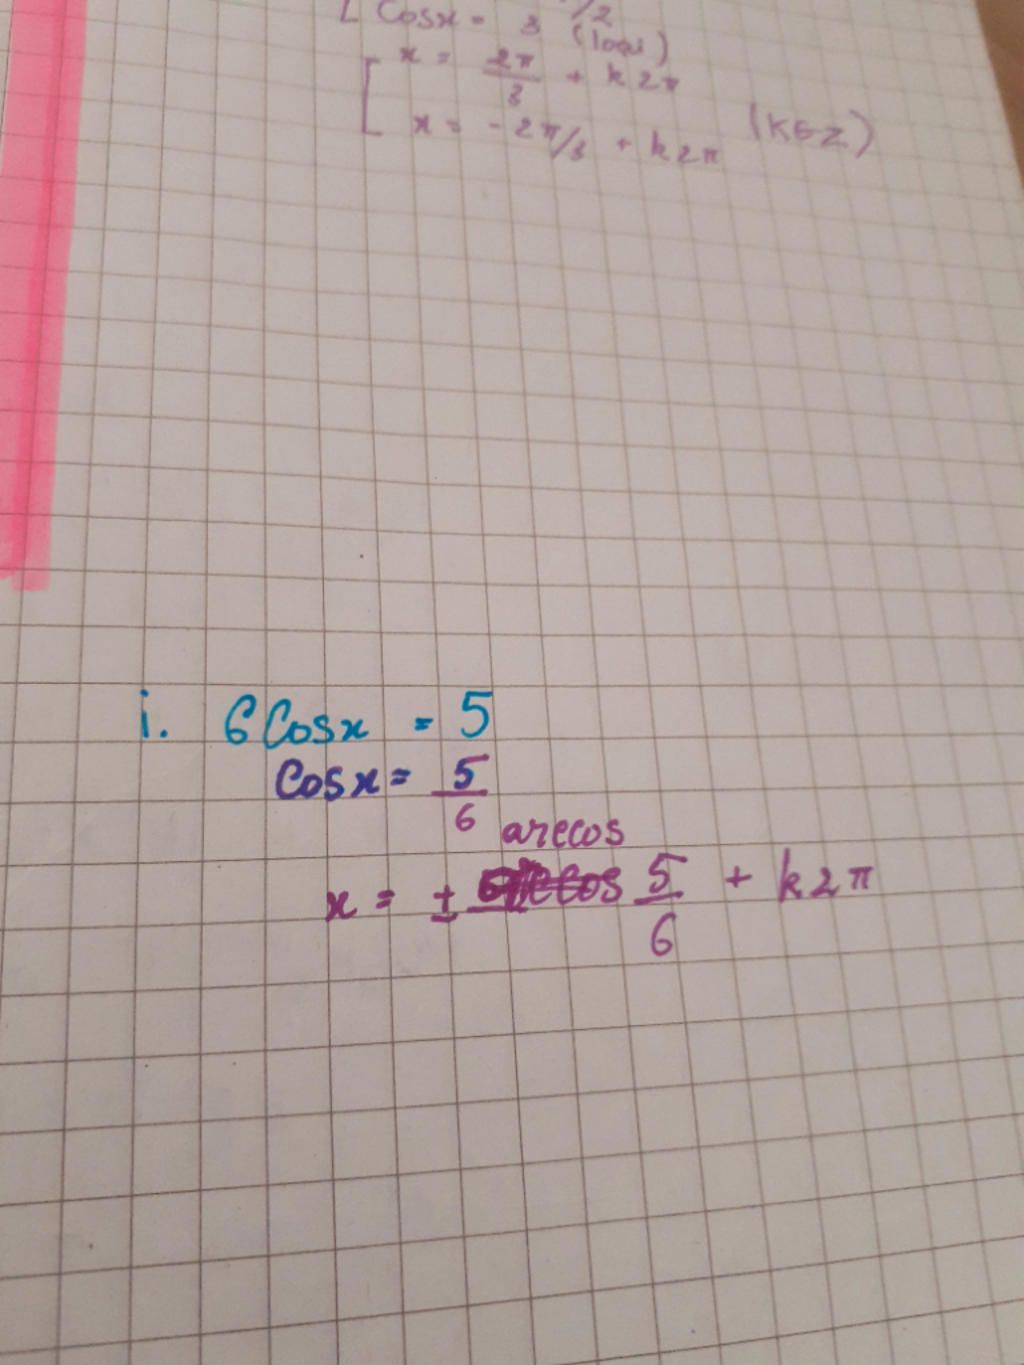 [ Cosx = 3 (loại)
[ x = 2π/3 + k2π
x = -2π/3 + k2π (k∈Z)
i. 6Cosx = 5
Cosx = 5/6
arccos
x = ± 5/6 + k2π